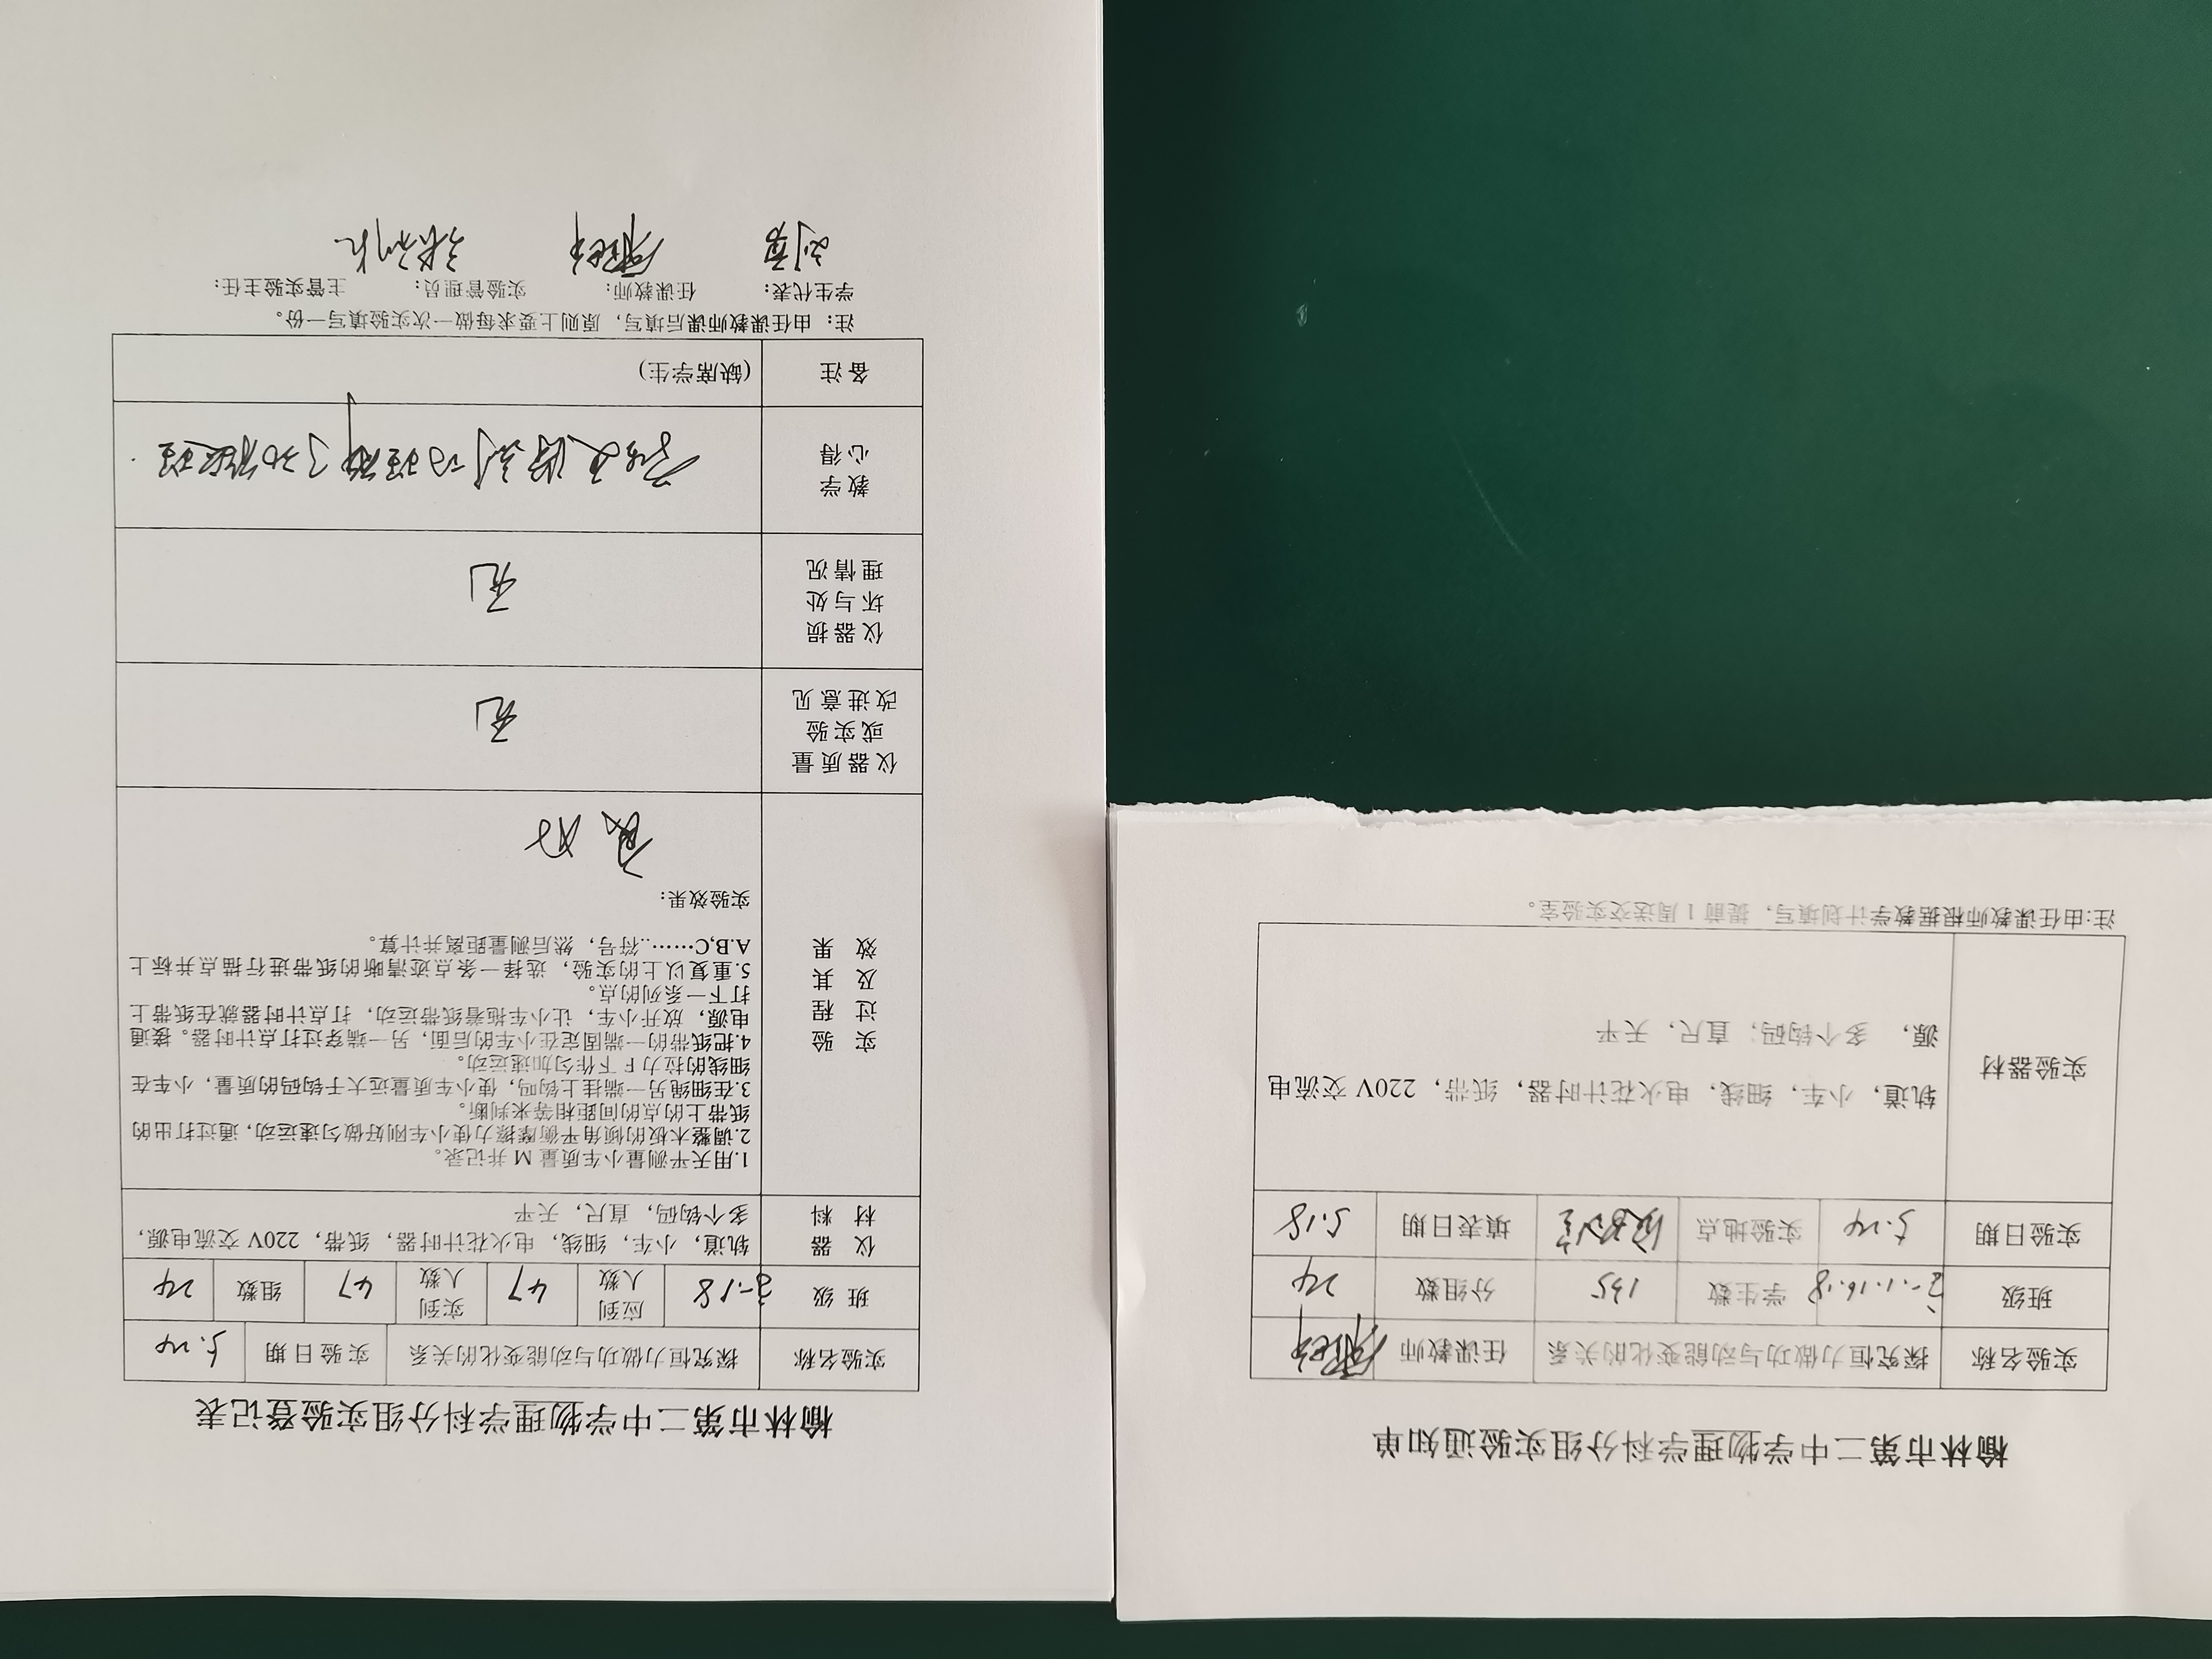 榆林市第二中学物理学科分组实验通知单
实验名称 探究恒力做功与动能变化的关系 任课教师
班级 学生数 135 分组数 24
实验日期 5.24 实验地点 填表日期 5.18
实验器材 轨道，小车，细线，电火花计时器，纸带，220V 交流电
源， 多个钩码；直尺，天平
注:由任课教师根据教学计划填写，提前 1 周送交实验室。
榆林市第二中学物理学科分组实验登记表
实验名称 探究恒力做功与动能变化的关系 实验日期 5.24
班 级 应到人数 47 实到人数 47 组数 24
仪 器 材 料
轨道，小车，细线，电火花计时器，纸带，220V 交流电源，
多个钩码，直尺，天平
实 验 过 程 及 其 效 果
1.用天平测量小车质量 M 并记录。
2.调整木板的倾角平衡摩擦力使小车刚好做匀速运动，通过打出的
纸带上的点的间距相等来判断。
3.在细绳另一端挂上钩吗，使小车质量远大于钩码的质量，小车在
细线的拉力 F 下作匀加速运动。
4.把纸带的一端固定在小车的后面，另一端穿过打点计时器。接通
电源，放开小车，让小车拖着纸带运动，打点计时器就在纸带上
打下一系列的点。
5.重复以上的实验，选择一条点迹清晰的纸带进行描点并标上
A.B,C……..符号，然后测量距离并计算。
实验效果：
良好
仪器质量或实验改进意见 无
仪器损坏与处理情况 无
教学心得 了动能定理.
备注 (缺席学生)
注：由任课教师课后填写，原则上要求每做一次实验填写一份。
学生代表： 任课教师： 实验管理员： 主管实验主任：
刘勇